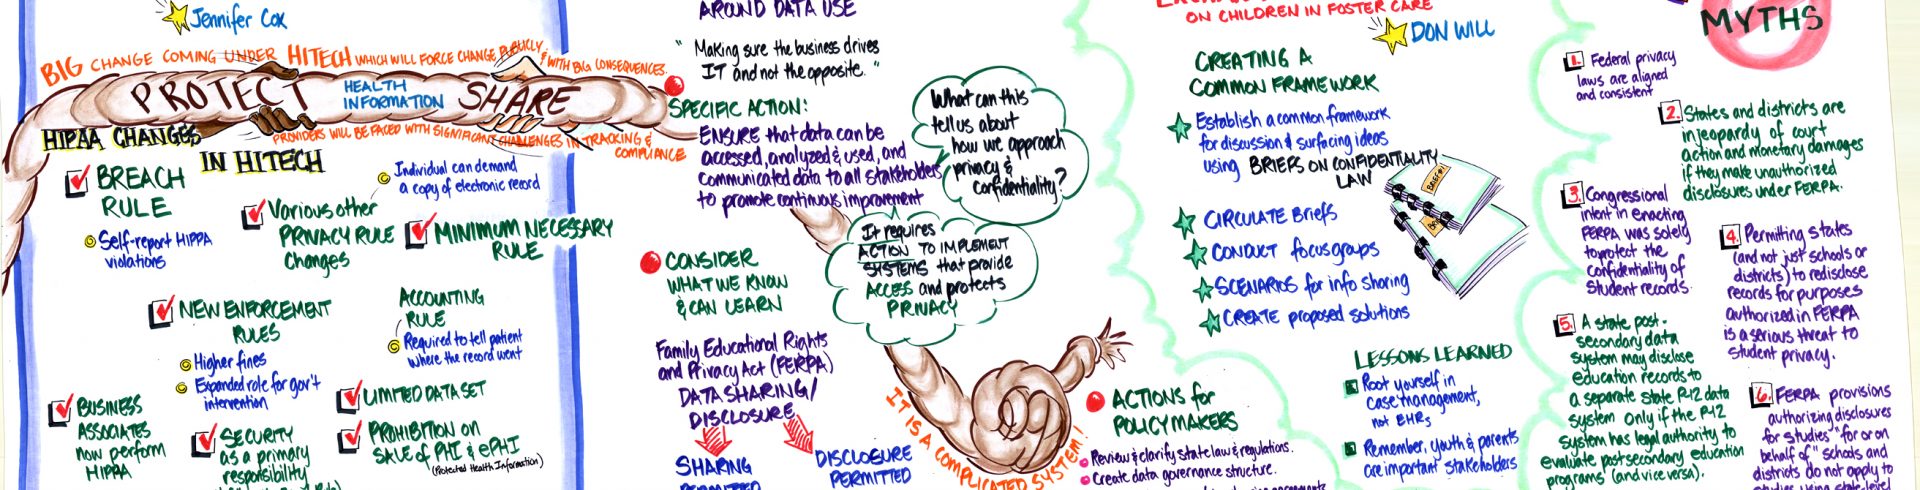 Jennifer Cox
BIG CHANGE COMING UNDER HITECH WHICH WILL FORCE CHANGE PUBLICLY & WITH BIG CONSEQUENCES.
PROTECT
HEALTH
INFORMATION
SHARE
PROVIDERS WILL BE FACED WITH SIGNIFICANT CHALLENGES IN TRACKING &
COMPLIANCE
HIPAA CHANGES
IN HITECH
BREACH
RULE
Self-report HIPPA
violations
Various other
PRIVACY RULE
Changes
Individual can demand
a copy of electronic record
MINIMUM NECESSARY
RULE
NEW ENFORCEMENT
RULES
Higher fines
Expanded role for gov't
intervention
ACCOUNTING
RULE
Required to tell patient
where the record went
BUSINESS
ASSOCIATES
now perform
HIPPA
SECURITY
as a primary
responsibility
LIMITED DATA SET
PROHIBITION ON
SALE of PHI & ePHI
(Protected Health Information)
AROUND DATA USE
"Making sure the business drives
IT and not the opposite."
SPECIFIC ACTION:
ENSURE that data can be
accessed, analyzed & used, and
communicated data to all stakeholders
to promote continuous improvement
What can this
tell us about
how we approach
privacy &
confidentiality?
It requires
ACTION TO IMPLEMENT
SYSTEMS that provide
ACCESS and protects
PRIVACY
CONSIDER
WHAT WE KNOW
& CAN LEARN
Family Educational Rights
and Privacy Act (FERPA)
DATA SHARING/
DISCLOSURE
SHARING
PERMITTED
DISCLOSURE
PERMITTED
IT IS A COMPLICATED SYSTEM!
ACTIONS for
POLICYMAKERS
Review & clarify state law & regulations.
Create data governance structure.
ON CHILDREN IN FOSTER CARE
DON WILL
CREATING A
COMMON FRAMEWORK
Establish a common framework
for discussion & surfacing ideas
using BRIEFS ON CONFIDENTIALITY
LAW
CIRCULATE Briefs
CONDUCT focus groups
SCENARIOS for info sharing
CREATE proposed solutions
BRIEF #1
LESSONS LEARNED
Root yourself in
case management,
not EHRs
Remember, youth & parents
are important stakeholders
MYTHS
1. Federal privacy
laws are aligned
and consistent
2. States and districts are
in jeopardy of court
action and monetary damages
if they make unauthorized
disclosures under FERPA.
3. Congressional
intent in enacting
FERPA was solely
to protect the
confidentiality of
student records.
4. Permitting states
(and not just schools or
districts) to redisclose
records for purposes
authorized in FERPA
is a serious threat to
student privacy.
5. A state post-
secondary data
system may disclose
education records to
a separate state P-12 data
system only if the P-12
system has legal authority to
evaluate postsecondary education
programs (and vice versa).
6. FERPA provisions
authorizing disclosures
for studies "for or on
behalf of" schools and
districts do not apply to